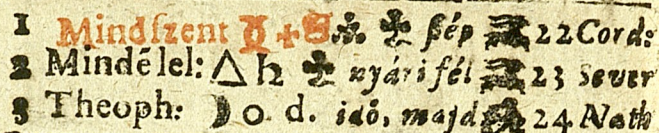 1 Mindſzent ßép 22 Cord:
2 Mindé lel: △ ♄ nyári fél 23 Sever
3 Theoph: ☽ o. d. idő, majd 24 Nath